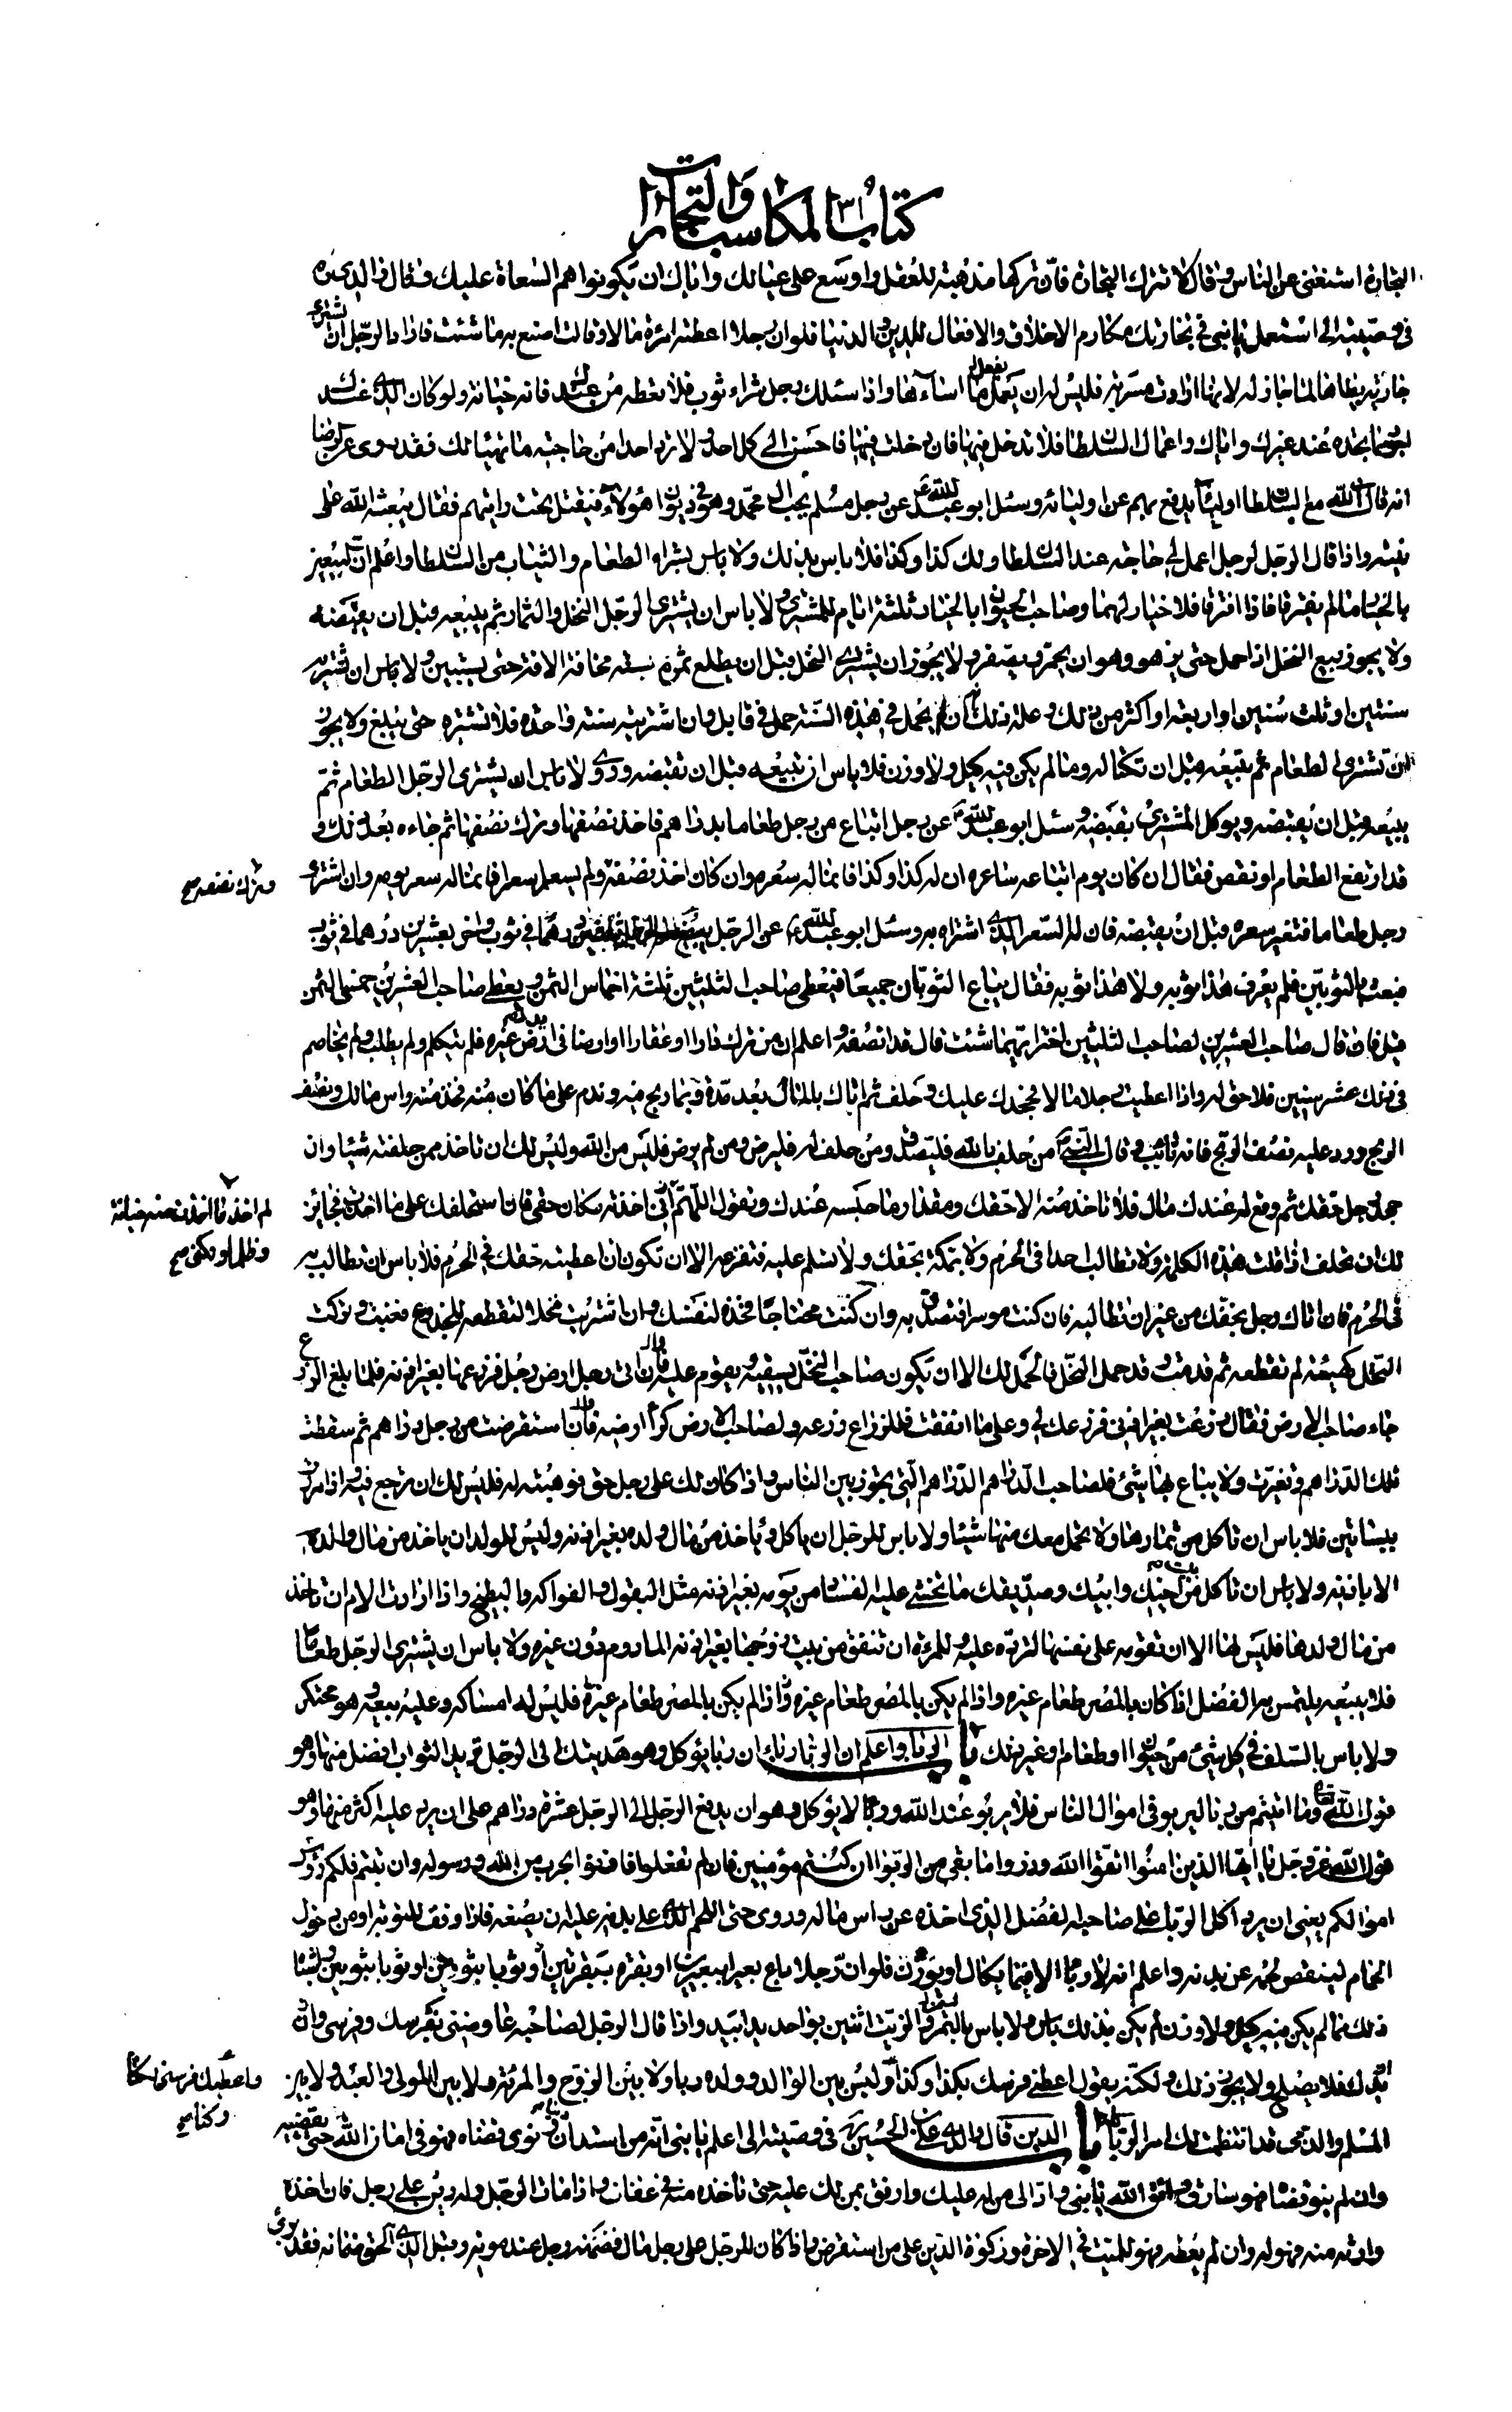 كتاب المكاسب والتجارات
التجارة استغنى عن الناس وقال لا تترك التجارة فان تركها مذهبة للعقل واوسع على عيالك واياك ان يكونوا هم السعاة عليك وقال والدى ره
فى وصيته الى استعمل يا بنى فى تجارتك مكارم الاخلاق والافعال للدين والدنيا فلو ان رجلا اعطته امرئة مالا وقالت اصنع به ما شئت فاذا اراد الرجل ان يشترى
جارية يطاها لما جاز له لانها ارادت مسرته فليس له ان يعمل ما اساءها واذا سئلك رجل شراء ثوب فلا تعطه من عندك فانه خيانة ولو كان الذى عندك
اجود مما تجده عند غيرك واياك واعمال السلطان فلا تدخل فيها فان دخلت فيها فاحسن الى كل احد ولا ترد احدا من حاجته ما تهيئا لك فقد روى عن الرضا
انه قال ان لله مع السلطان اولياء يدفع بهم عن اوليائه وسئل ابو عبد الله ع عن رجل مسلم يحب ال محمد وهو فى ديوان هؤلاء فيقتل تحت رايتهم فقال يبعثه الله على
نيته واذا قال الرجل لرجل اعمل لى حاجة عند السلطان ولك كذا وكذا فلا باس بذلك ولا باس بشراء الطعام والثياب من السلطان واعلم ان البيعين
بالخيار ما لم يفترقا فاذا افترقا فلا خيار لهما وصاحب الحيوان بالخيار ثلثة ايام للمشترى ولا باس ان يشترى الرجل النخل والثمار ثم يبيعه قبل ان يقبضه
ولا يجوز بيع النخل اذا حمل حتى يزهو وهو ان يحمر ويصفر ولا يجوز ان يشترى النخل قبل ان يطلع ثمره سنة مخافة الافة حتى يستبين ولا باس ان تشتريه
سنتين او ثلث سنين او اربعة او اكثر من ذلك وعلة ذلك انه ان لم يحمل فى هذه السنة حمل فى قابل وان اشتريته سنة واحدة فلا تشتره حتى يبلغ ولا يجوز
ان تشترى الطعام ثم تبيعه قبل ان تكتاله وما لم يكن فيه كيل ولا وزن فلا باس ان تبيعه قبل ان تقبضه وروى لا باس ان يشترى الرجل الطعام ثم
يبيعه قبل ان يقبضه ويوكل المشترى بقبضه وسئل ابو عبد الله ع عن رجل ابتاع من رجل طعاما بدراهم فاخذ نصفها وترك نصفها ثم جاءه بعد ذلك و
قد ارتفع الطعام او نقص فقال ان كان يوم ابتاعه ساعره ان له كذا وكذا فانما له سعره وان كان اخذ نصفه ولم يسم سعرا فانما له سعر يومه وان اشترى
وترك نصفه صح
رجل طعاما فتغير سعره قبل ان يقبضه فان له السعر الذى اشتراه به وسئل ابو عبد الله ع عن الرجل يبضعه الرجل ثلثين درهما فى ثوب واخر بعشرين درهما فى ثوب
فبعث بالثوبين فلم يعرف هذا ثوبه ولا هذا ثوبه فقال يباع الثوبان جميعا فيعطى صاحب الثلثين ثلثة اخماس الثمن ويعطى صاحب العشرين خمسى الثمن
قيل فان قال صاحب العشرين لصاحب الثلثين اختر ايهما شئت قال قد انصفه واعلم ان من ترك دارا او عقارا او ارضا فى يد غيره فلم يتكلم ولم يطلب ولم يخاصم
فى ذلك عشر سنين فلا حق له واذا اعطيت رجلا مالا فجحدك عليه وحلف ثم اتاك بالمال بعد مدة وبما ربح فيه وندم على ما كان منه فخذ منه راس مالك ونصف
الربح ورد عليه نصف الربح فانه تائب وقال النبى ص من حلف بالله فليصدق ومن حلف له فليرض ومن لم يرض فليس من الله وليس لك ان تاخذ ممن حلفته شيئا وان
جحد رجل حقك ثم وقع له عندك مال فلا تاخذ منه الا حقك ومقدار ما حبسه عندك وتقول اللهم انى اخذته مكان حقى فان استحلفك على ما اخذت فجائز
لم اخذ ما اخذت منه خيانة
وظلما ولكنى صح
لك ان تحلف اذا قلت هذه الكلمة ولا تطالب احدا فى الحرم ولا بمكة بحقك ولا تسلم عليه فتفزعه الا ان تكون اعطيته حقك فى الحرم فلا باس ان تطالب به
فى الحرم فان اتاك رجل بحقك من غير ان تطالبه فان كنت موسرا فتصدق به وان كنت محتاجا فخذه لنفسك وان اشتريت نخلا لتقطعه للجذوع فغبت وتركت
النخل كهيئته لم تقطعه ثم قدمت وقد حمل النخل فالحمل لك الا ان تكون صاحب النخل يسقيه ويقوم عليه وان اتى رجل ارض رجل فزرعها بغير اذنه فلما بلغ الزرع
جاء صاحب الارض فقال زرعت بغير اذنى فزرعك لى وعلى ما انفقت فللزارع زرعه ولصاحب الارض كراء ارضه فان استقرضت من رجل دراهم ثم سقطت
تلك الدراهم وتغيرت ولا يباع بها شيئ فلصاحب الدراهم الدراهم التى تجوز بين الناس واذا كان لك على رجل حق فوهبته له فليس لك ان ترجع فيه واذا مررت
ببساتين فلا باس ان تاكل من ثمارها ولا تحمل معك منها شيئا ولا باس للرجل ان ياكل وياخذ من مال ولده بغير اذنه وليس للولد ان ياخذ من مال والده
الا باذنه ولا باس ان تاكل من بيت اخيك وابيك وصديقك ما تخشى عليه الفساد من يومه بغير اذنه مثل البقول والفواكه والبطيخ واذا ارادت الام ان تاخذ
من مال ولدها فليس لها الا ان تقومه على نفسها لترده عليه وللمرئة ان تنفق من بيت زوجها بغير اذنه المادوم دون غيره ولا باس ان يشترى الرجل طعاما
فلا يبيعه يلتمس به الفضل اذا كان بالمصر طعام غيره واذا لم يكن بالمصر طعام غيره واذا لم يكن بالمصر طعام غيره فليس له امساكه وعليه بيعه وهو محتكر
ولا باس بالسلف فى كل شيئ من حيوان او طعام او غير ذلك باب الربا واعلم ان الربا رباءان ربا يؤكل وهو هديتك الى الرجل تريد الثواب افضل منها وهو
قول الله تعا وما اتيتم من ربا ليربو فى اموال الناس فلا يربو عند الله وربا لا يؤكل وهو ان يدفع الرجل الى الرجل عشرة دراهم على ان يرد عليه اكثر منها وهو
قول الله عز وجل يا ايها الذين امنوا اتقوا الله وذروا ما بقى من الربوا ان كنتم مؤمنين فان لم تفعلوا فاذنوا بحرب من الله ورسوله وان تبتم فلكم رؤس
اموالكم يعنى ان يرد اكل الربا على صاحبه الفضل الذى اخذه عن راس ماله وروى حتى اللحم الذى على بدنه عليه ان يضعه فاذا وفق للتوبة ادمن دخول
الحمام لينقص لحمه عن بدنه واعلم انه لا ربا الا فيما يكال او يوزن فلو ان رجلا باع بعيرا ببعيرين او بقرة ببقرتين او ثوبا بثوبين او ثوبا بثوبين واشباه
ذلك مما لم يكن فيه كيل ولا وزن لم يكن بذلك باس ولا باس بالتمر والزيت اثنين بواحد يدا بيد واذا قال الرجل لصاحبه عاوضنى بفرسك وفرسى وازيدك
واعطيك فرسى بكذا
وكذا صح
فلا يصلح ولا يجوز ذلك ولكنه يقول اعطنى فرسك بكذا وكذا وليس بين الوالد وولده ربا ولا بين الزوج والمرئة ولا بين المولى والعبد ولا بين
المسلم والذمى قد انتظمت لك امر الربا باب الدين قال والدى على بن الحسين ره فى وصيته الى اعلم يا بنى انه من استدان دينا ونوى قضاه فهو فى امان الله حتى يقضيه
وان لم ينو قضاه فهو سارق واتق الله يا بنى واد الى من له عليك وارفق بمن لك عليه حتى تأخذه منه فى عفاف واذا مات الرجل وله دين على رجل فان اخذه
وارثه منه فهو له وان لم يعطه فهو للميت فى الاخرة وزكوة الدين على من استقرض واذا كان للرجل على رجل مال فضمنه رجل عند موته وقبل الذى الحق ضمانه فقد برئ